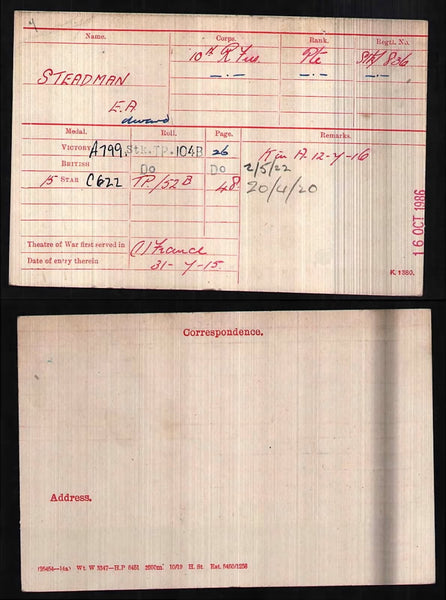 Name. Corps. Rank. Regtl. No.
STEADMAN 10th R Fus Pte STK/836
E.A —·— —·— —·—
dward
Medal. Roll. Page. Remarks.
VICTORY A799. Stk.TP.104B 26 K in A. 12-7-16
BRITISH Do Do 2/5/22
15 STAR C622 TP/52B 48 20/4/20
Theatre of War first served in (1) France
Date of entry therein 31-7-15.
K. 1380.
16 OCT 1986
Correspondence.
Address.
(35454—14a) Wt. W 3347—H.P 6451 2500m. 10/19 H. St. Est. 5400/1256